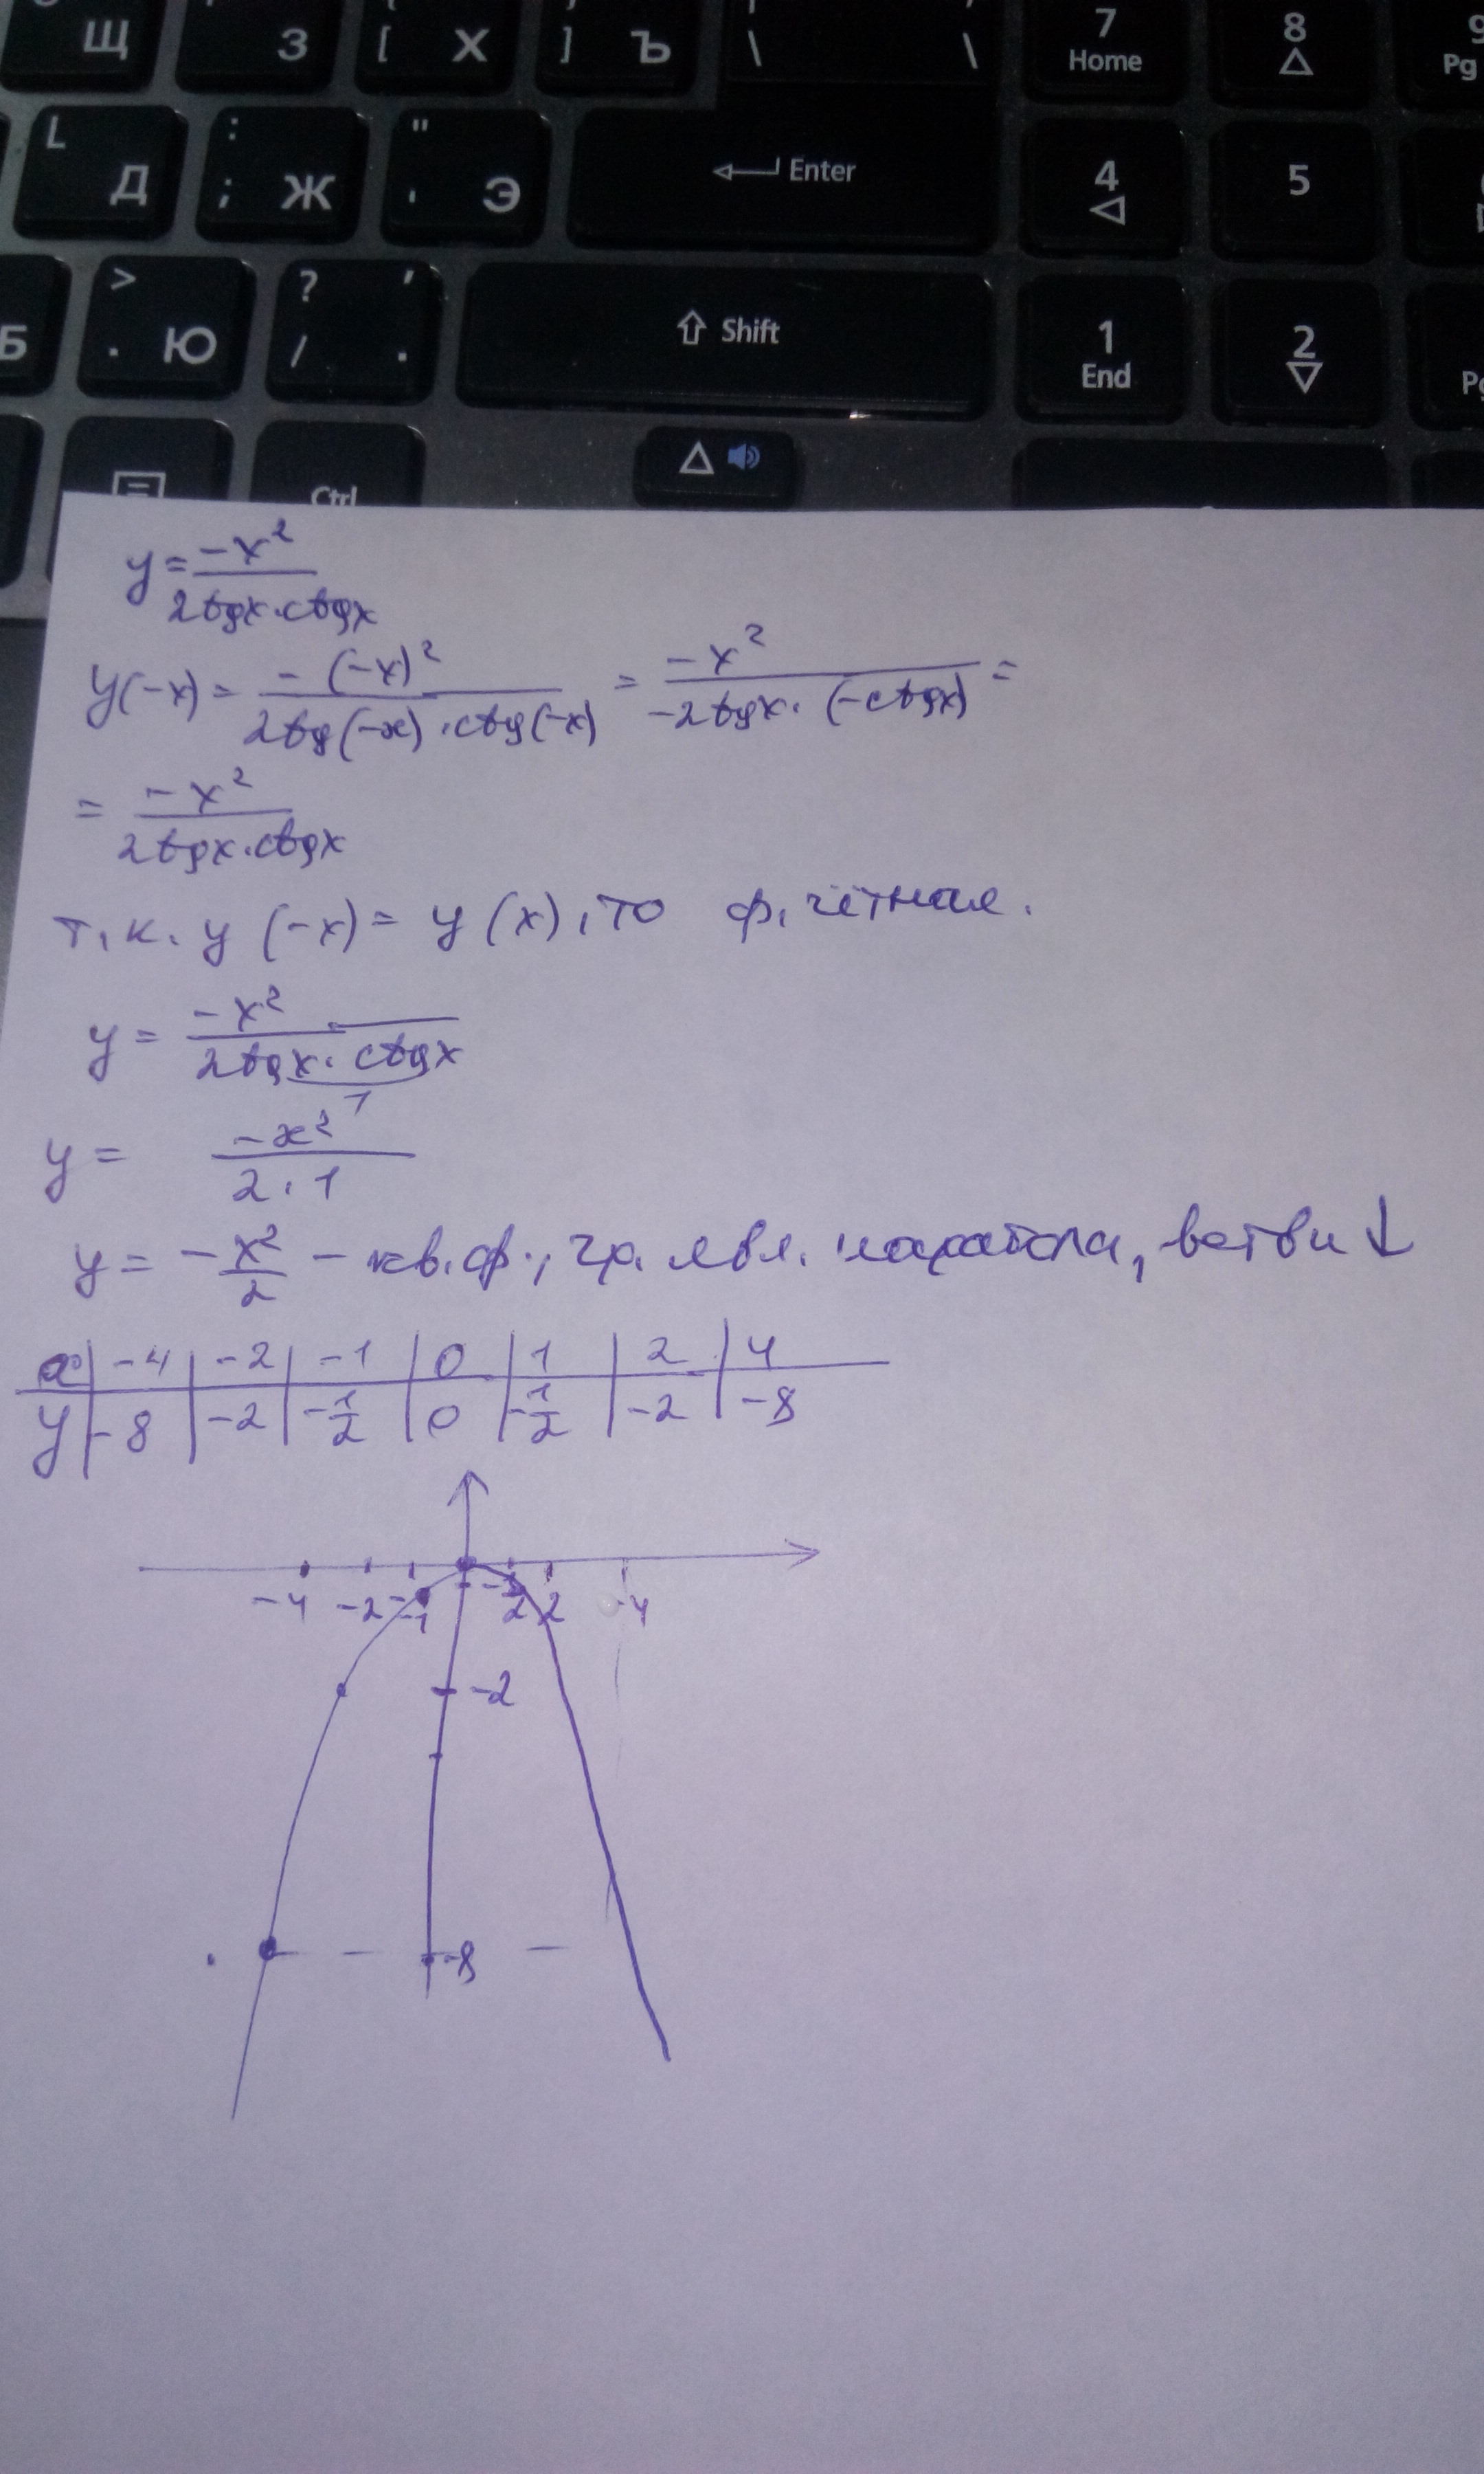 Щ З [ Х ] Ъ \ \ 7 Home 8 9 Pg
L Д : ; Ж " ' Э Enter 4 5
Б > . Ю ? / , . Shift 1 End 2 Pg
Ctrl
y = -x² / 2tgx·ctgx
y(-x) = -(-x)² / 2tg(-x)·ctg(-x) = -x² / -2tgx·(-ctgx) =
= -x² / 2tgx·ctgx
т.к. y(-x) = y(x), то ф. чётная.
y = -x² / 2tgx·ctgx
1
y = -x² / 2·1
y = -x²/2 - кв.ф., гр. явл. парабола, ветви ↓
x | -4 | -2 | -1 | 0 | 1 | 2 | 4
y | -8 | -2 | -1/2 | 0 | -1/2 | -2 | -8
-4 -2 -1 -1/2 2 4
-2
-8